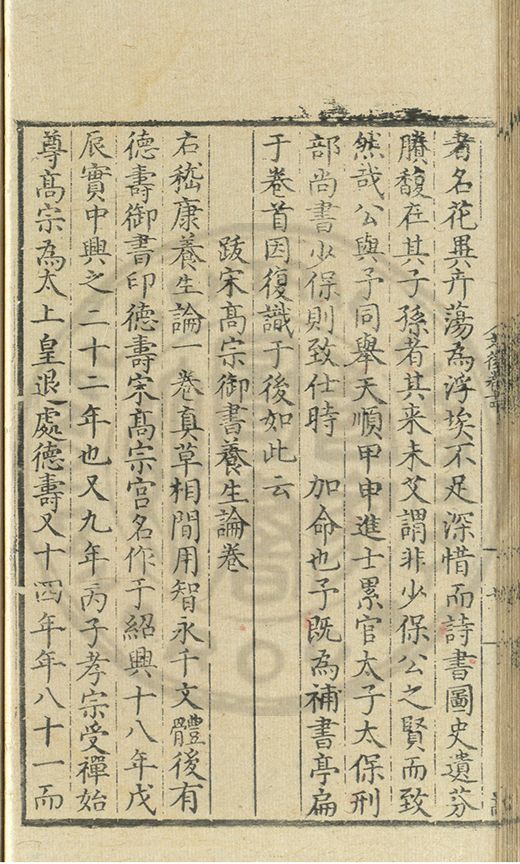 者名花異卉蕩為浮埃不足深惜而詩書圖史遺芬
賸馥在其子孫者其来未艾謂非少保公之賢而致
然哉公與予同舉天順甲申進士累官太子太保刑
部尚書少保則致仕時　加命也予既為補書亭扁
于卷首因復識于後如此云
跋宋髙宗御書養生論卷
右嵇康養生論一卷真草相間用智永千文體後有
德壽御書印德壽宋髙宗宫名作于紹興十八年戊
辰實中興之二十二年也又九年丙子孝宗受禪始
尊髙宗為太上皇退處德壽又十四年年八十一而